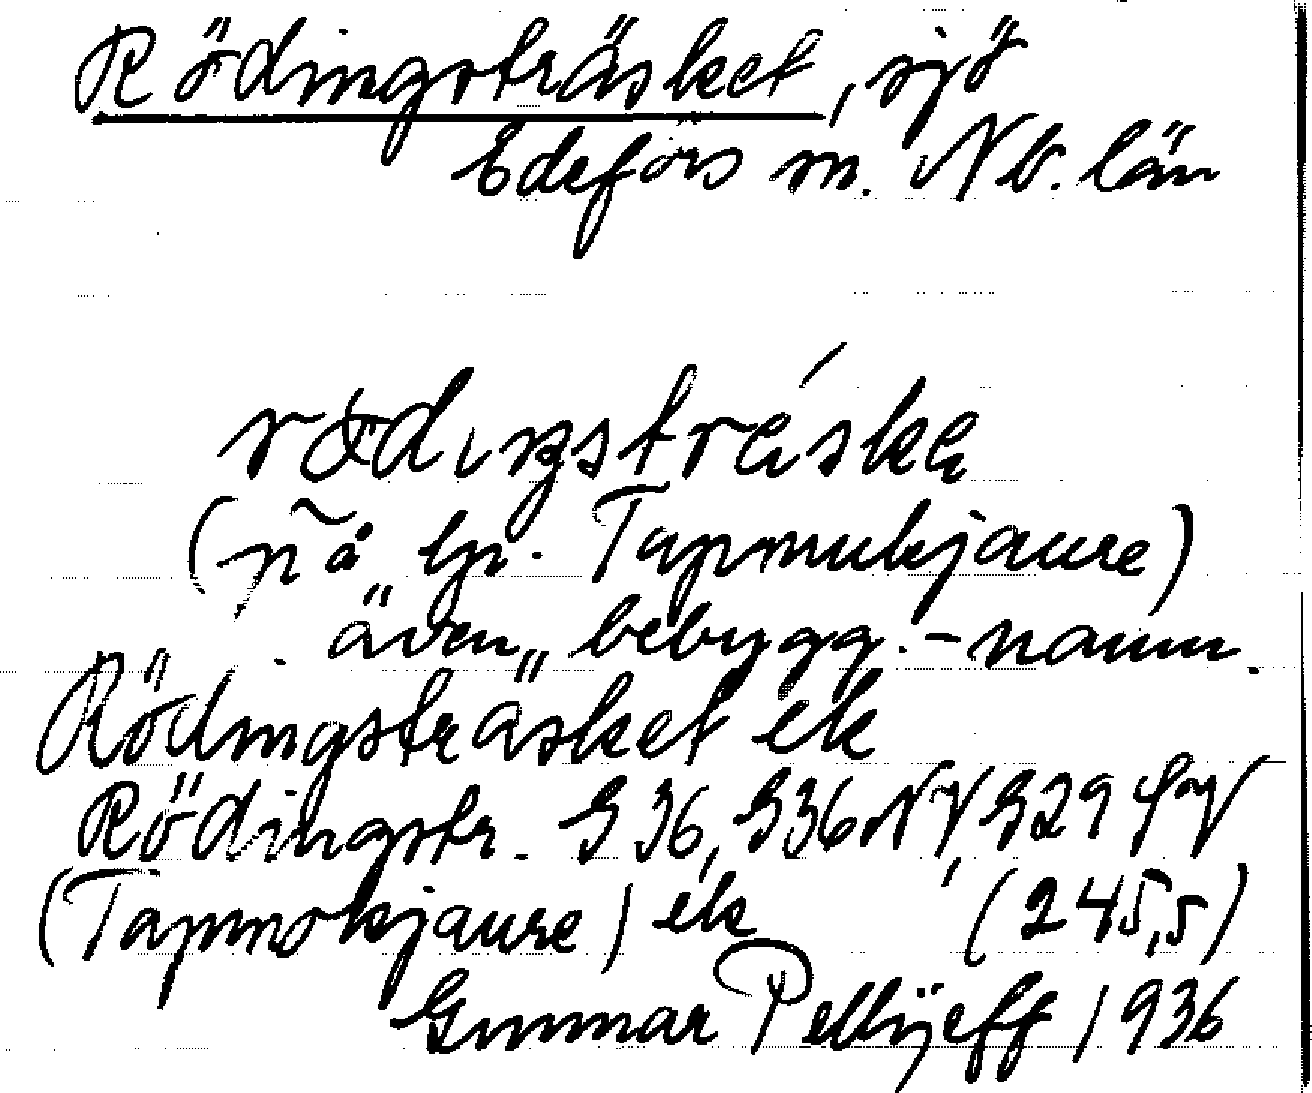 Rödingsträsket, sjö
Edefors sn. Nb. län
(på lp. Tapmukjaure)
även bebygg.-namn.
Rödingsträsket ek
Rödingstr. G36, G36 NV, G29
(Tapmokjaure) ek (245,5)
Gunnar Pellijeff 1936